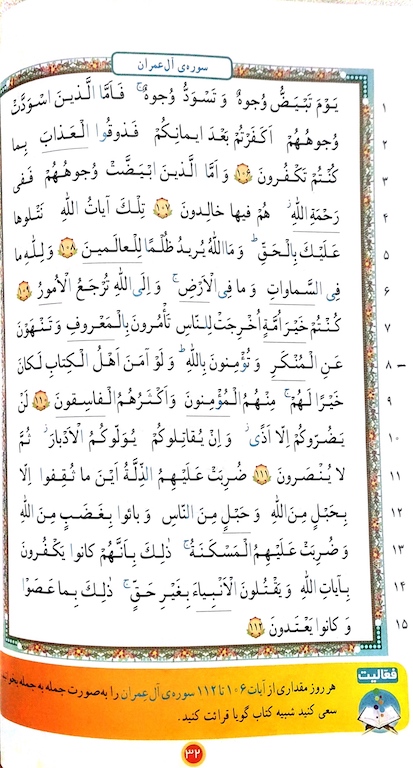 سوره‌ی آل عمران
يَوْمَ تَبْيَضُّ وُجوهٌ وَ تَسْوَدُّ وُجوهٌ ۚ فَاَمَّا الَّذينَ اسْوَدَّتْ ۱
وُجوهُهُمْ اَكَفَرْتُمْ بَعْدَ ايمانِكُمْ فَذوقُوا الْعَذابَ بِما ۲
كُنْتُمْ تَكْفُرونَ ۱۰۶ وَ اَمَّا الَّذينَ ابْيَضَّتْ وُجوهُهُمْ فَفی ۳
رَحْمَةِ اللهِ ۖ هُمْ فيها خالِدونَ ۱۰۷ تِلْكَ آياتُ اللهِ نَتْلوها ۴
عَلَيْكَ بِالْحَقِّ ۗ وَ مَا اللهُ يُريدُ ظُلْمًا لِلْعالَمينَ ۱۰۸ وَ لِلهِ ما ۵
فِی السَّماواتِ وَ ما فِی الْاَرْضِ ۚ وَ اِلَی اللهِ تُرْجَعُ الْاُمورُ ۱۰۹ ۶
كُنْتُمْ خَيْرَ اُمَّةٍ اُخْرِجَتْ لِلنّاسِ تَأْمُرونَ بِالْمَعْروفِ وَ تَنْهَوْنَ ۷
عَنِ الْمُنْكَرِ وَ تُؤْمِنونَ بِاللهِ ۗ وَ لَوْ آمَنَ اَهْلُ الْكِتابِ لَكانَ ۸
خَيْرًا لَهُمْ ۚ مِنْهُمُ الْمُؤْمِنونَ وَ اَكْثَرُهُمُ الْفاسِقونَ ۱۱۰ لَنْ ۹
يَضُرّوكُمْ اِلّا اَذًی ۖ وَ اِنْ يُقاتِلوكُمْ يُوَلّوكُمُ الْاَدْبارَ ۖ ثُمَّ ۱۰
لا يُنْصَرونَ ۱۱۱ ضُرِبَتْ عَلَيْهِمُ الذِّلَّةُ اَيْنَ ما ثُقِفوا اِلّا ۱۱
بِحَبْلٍ مِنَ اللهِ وَ حَبْلٍ مِنَ النّاسِ وَ بائوا بِغَضَبٍ مِنَ اللهِ ۱۲
وَ ضُرِبَتْ عَلَيْهِمُ الْمَسْكَنَةُ ۚ ذٰلِكَ بِاَنَّهُمْ كانوا يَكْفُرونَ ۱۳
بِآياتِ اللهِ وَ يَقْتُلونَ الْاَنْبِياءَ بِغَيْرِ حَقٍّ ۚ ذٰلِكَ بِما عَصَوْا ۱۴
وَ كانوا يَعْتَدونَ ۱۱۲ ۱۵
فعّالیت
هر روز مقداری از آیات ۱۰۶ تا ۱۱۲ سوره‌ی آل عِمران را به‌صورت جمله به جمله بخوانید
سعی کنید شبیه کتاب گویا قرائت کنید.
۳۲